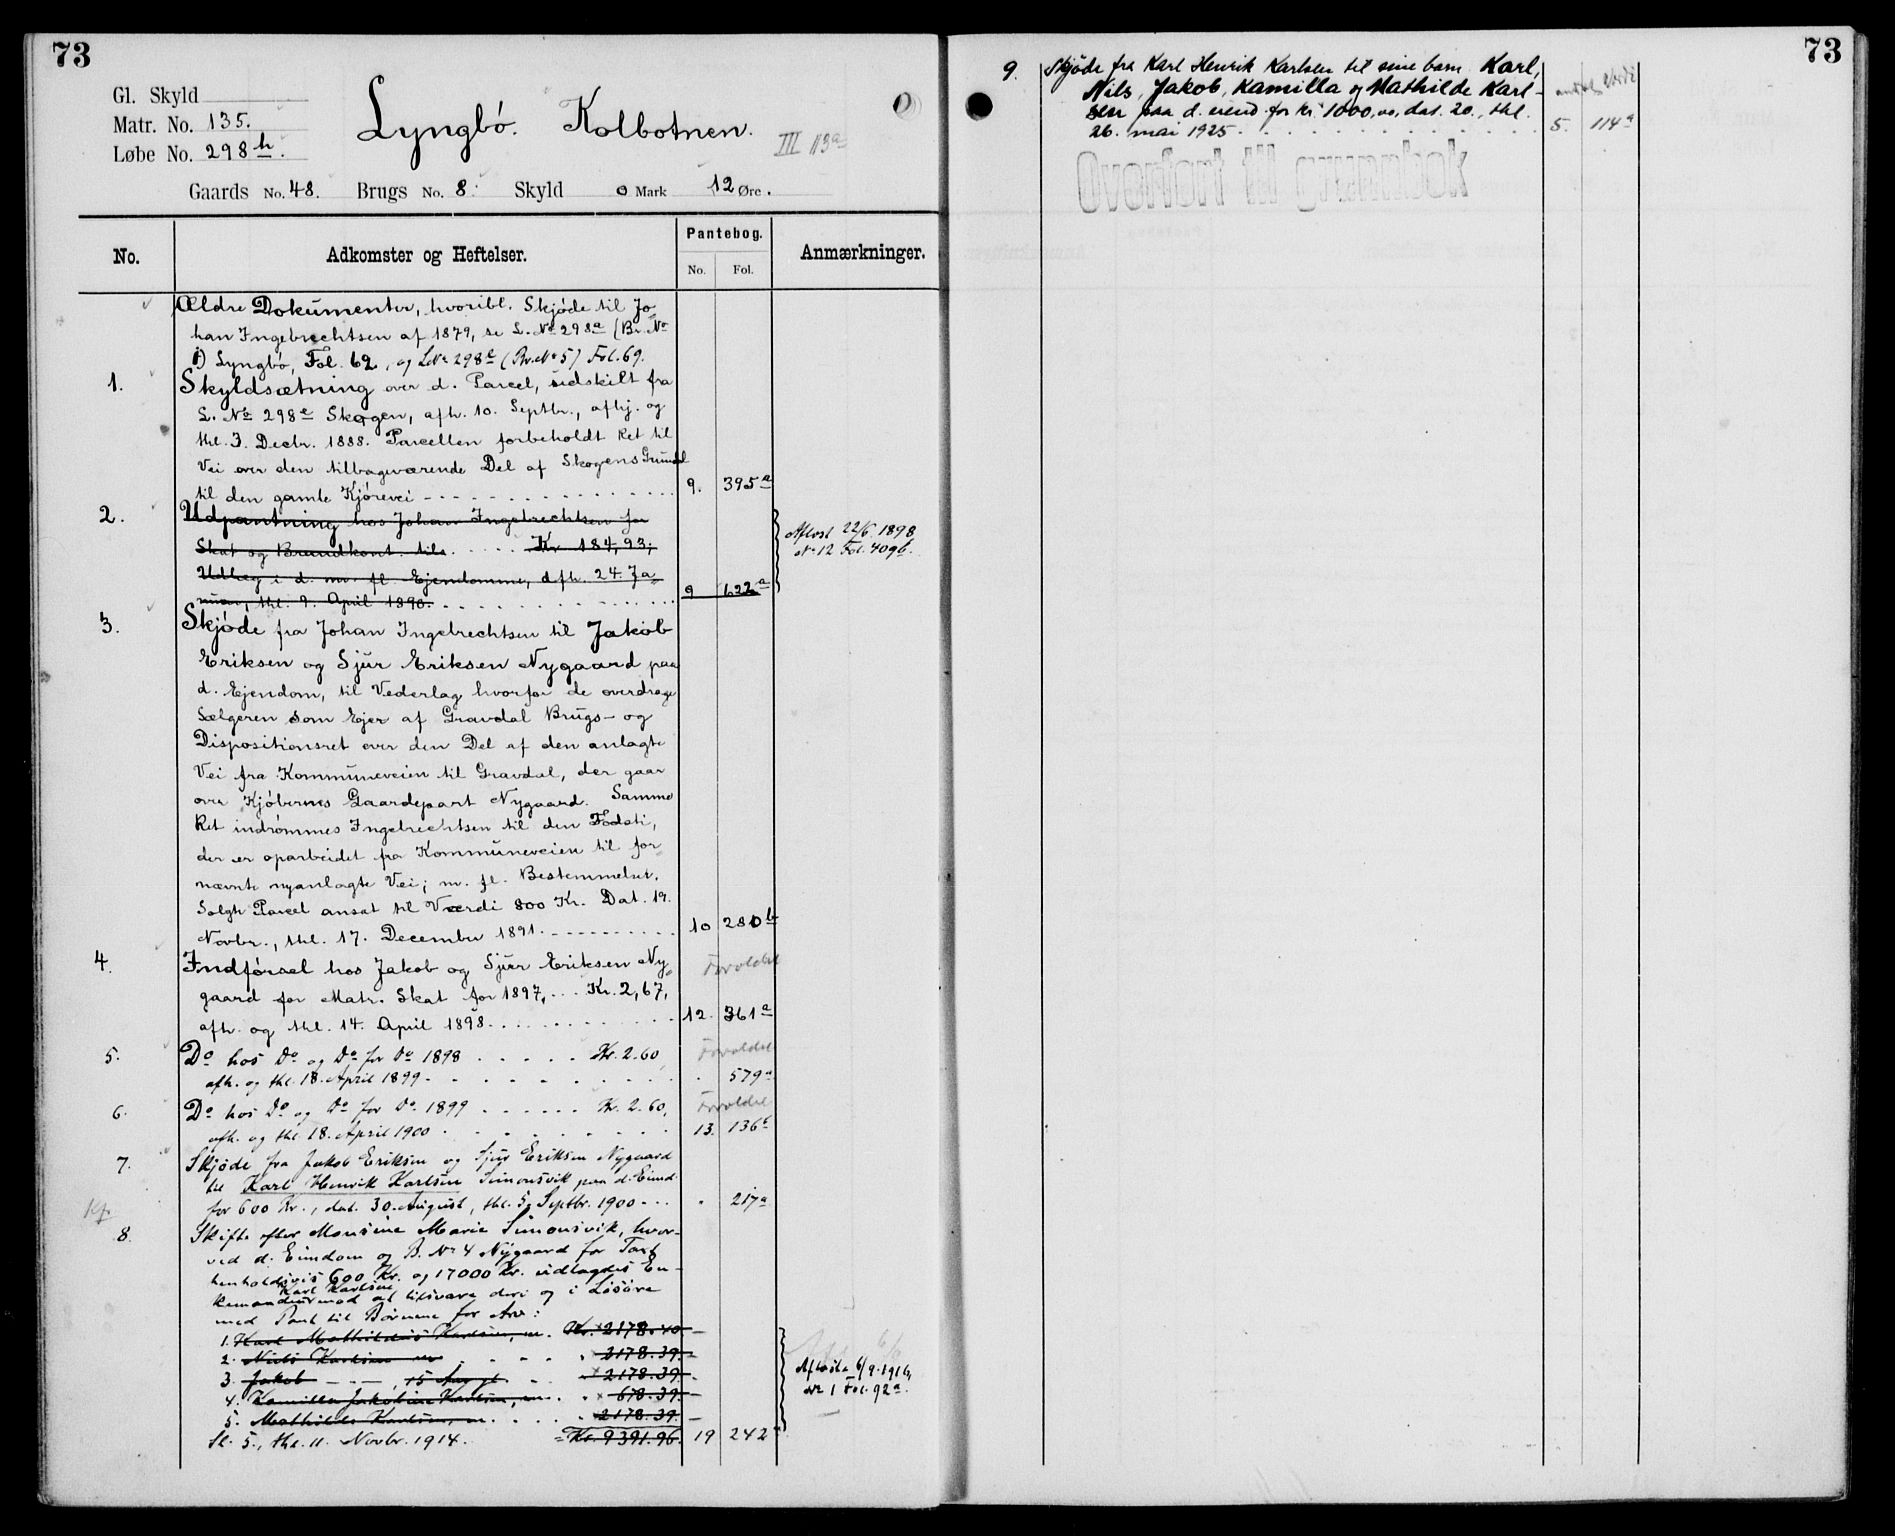 73
Gl. Skyld
Matr. No. 135.
Løbe No. 298h.
Lyngbö. Kolbotnen.
III 113a
Gaards No. 48. Brugs No. 8. Skyld 0 Mark 12 Øre.
No. Adkomster og Heftelser. Pantebog. Anmærkninger.
No. Fol.
Ældre Dokumenter, hvoribl. Skjöde til Jo-
han Ingebrechtsen af 1879, se L. No 298a (Br. No
1) Lyngbö, Fol. 62, og LNo 298e (Br. No 5) Fol. 69.
1. Skyldsætning over d. Parcel, udskilt fra
L. No 298e Skogen, afh. 10. Septbr., afhj. og
thl. 3. Decbr. 1888. Parcellen forbeholdt Ret til
Vei over den tilbageværende Del af Skogens Grund
til den gamle Kjörevei 9. 395a
2. Udpantning hos Johan Ingebrechtsen for
Skat og Brandkont. tils. Kr 184,93;
Udlæg i d. m. fl. Ejendomme, afh. 24. Ja-
nuar, thl. 9. April 1890. 9 622a
Aflyst 22/6 1898
No 12 Fol. 409b.
3. Skjöde fra Johan Ingebrechtsen til Jakob
Eriksen og Sjur Eriksen Nygaard paa
d. Ejendom, til Vederlag hvorfor de overdrage
Sælgeren som Ejer af Gravdal Brugs- og
Dispositionsret over den Del af den anlagte
Vei fra Kommuneveien til Gravdal, der gaar
over Kjöbernes Gaardepart Nygaard. Samme
Ret indrömmes Ingebrechtsen til den Fodsti,
der er oparbeidet fra Kommuneveien til for-
nævnte nyanlagte Vei; m. fl. Bestemmelser.
Solgte Parcel ansat til Værdi 800 Kr. Dat. 19.
Novbr., thl. 17. December 1891. 10 280b
4. Indförsel hos Jakob og Sjur Eriksen Ny- Forældet
gaard for Matr. Skat for 1897, Kr. 2,67,
afh. og thl. 14. April 1898. 12. 361a
5. Do hos Do og Do for Do 1898 Kr. 2.60, Forældet
afh. og thl. 18. April 1899. 579a
6. Do hos Do og Do for Do 1899 Kr. 2.60, Forældet
afh. og thl. 18. April 1900 13. 136b
7. Skjöde fra Jakob Eriksen og Sjur Eriksen Nygaard
til Karl Henrik Karlsen Simonsvik paa d. Eiend.
for 600 Kr., dat. 30. August, thl. 5. Septbr. 1900 217a
8. Skifte efter Monsine Marie Simonsvik, hvor-
ved d. Eiendom og B. No 4 Nygaard for Taxt
henholdsvis 600 Kr. og 17000 Kr. udlagdes En-
Karl Karlsen
kemanden mod at tilsvare deri og i Lösöre
med Pant til Börnene for Arv:
1. Karl Mathildus Karlsen, m. Kr. 2178.40.
2. Nils Karlsen m 2178.39.
3. Jakob — — , 15 Aar gl. 2178.39.
4. Kamilla Jakobine Karlsen, m. 678.39.
5. Mathilde Karlsen, m. 2178.39.
Sl. 5., thl. 11. Novbr. 1914. = Kr. 9391.96. 19 242
Aflöste 6/9. 1916,
No 1 Fol. 92a.
73
9. Skjöde fra Karl Henrik Karlsen til sine barn Karl,
Nils, Jakob, Kamilla og Mathilde Karl-
sen paa d. eiend for kr. 1000,00, dat. 20., thl.
26. mai 1925. 5. 114a
Overført til grunnbok